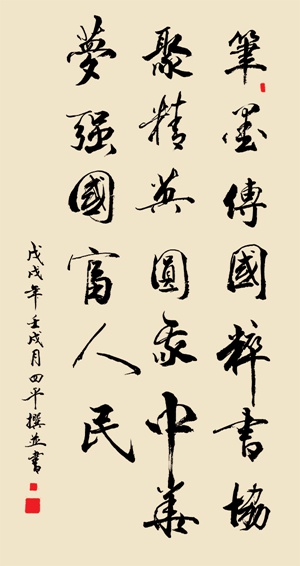 筆墨傳國粹書協
聚精英圓我中華
夢强國富人民
戊戌年壬戌月四平撰並書